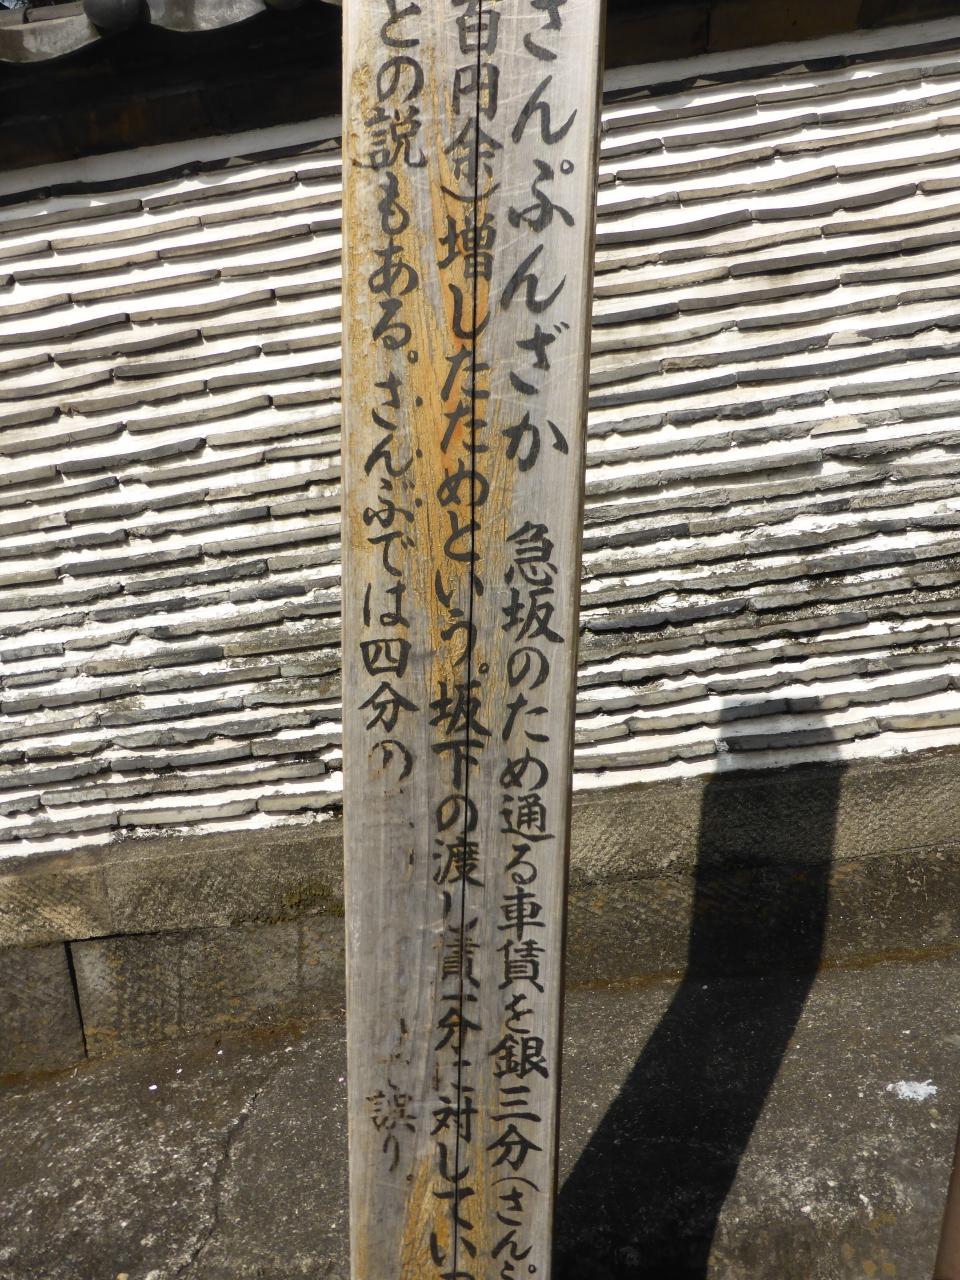 さんぷんざか 急坂のため通る車賃を銀三分(さんぷ
百円余)増したためという。坂下の渡し賃一分に対してい
との説もある。さんぶでは四分の 誤り。